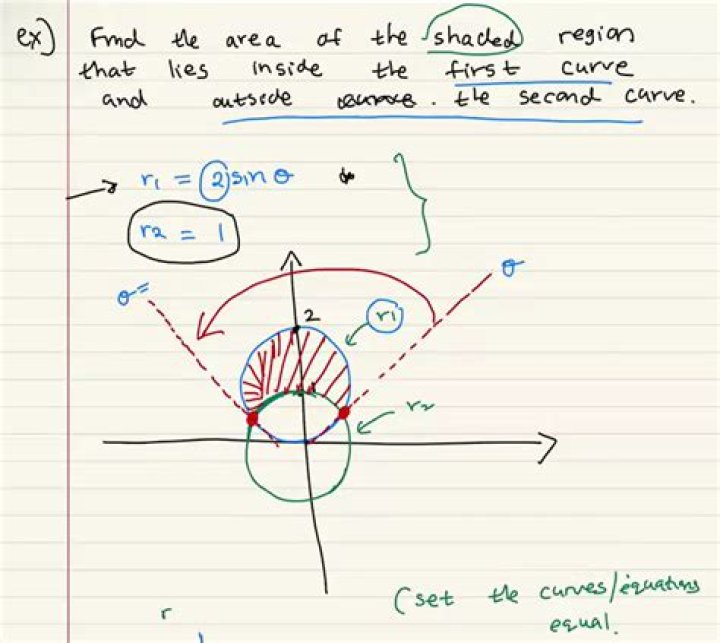 ex) Find the area of the shaded region
that lies inside the first curve
and outside the second curve.
r1 = 2 sin θ
r2 = 1
θ
θ =
2
r1
1
r2
(set the curves/equations
equal.
r